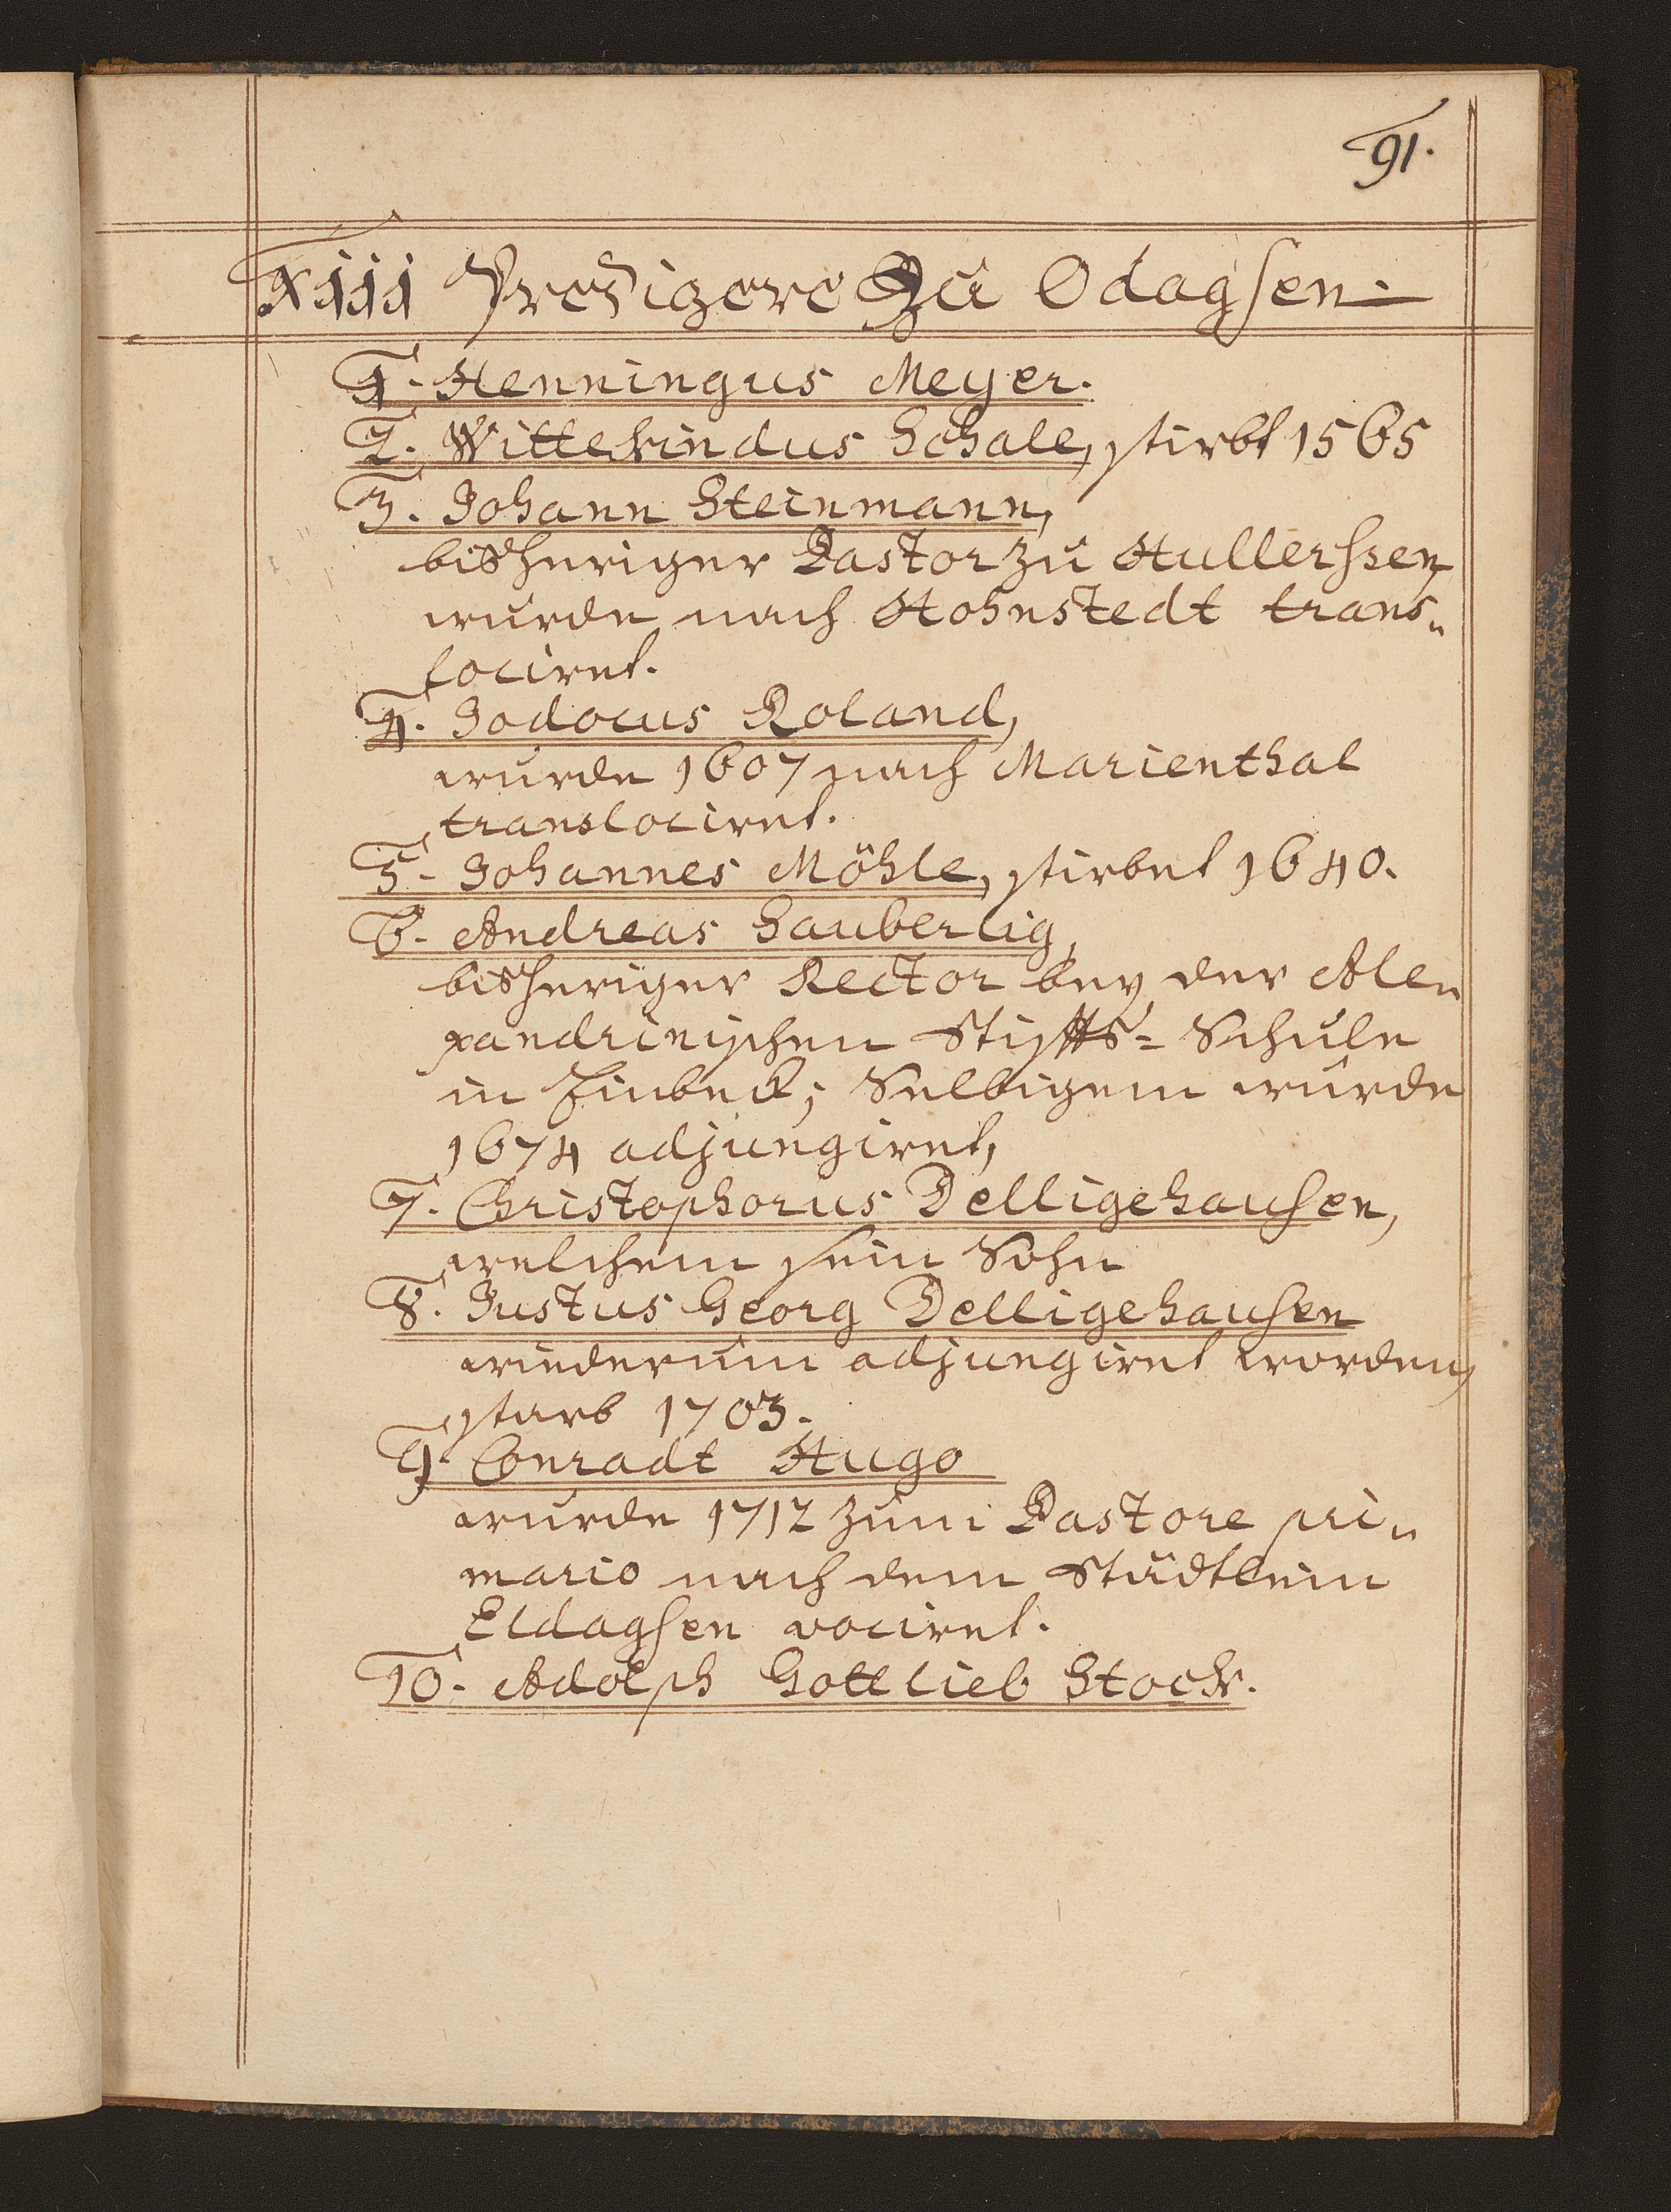 91.
XIII Predigere Zu Odagsen.
1. Henningus Meyer.
2. Wittekindus Schale, stirbt 1565
3. Johann Steinmann,
bißheriger Pastor zu Hullerssen
wurde nach Hohnstedt trans„
lociret.
4. Jodocus Roland,
wurde 1607 nach Marienthal
translociret.
5. Johannes Möhle, stirbet 1640.
6. Andreas Sauberlig,
bißheriger Rector bey der Ale„
xandrinischen Stiffts-Schule
in Einbeck; Selbigem wurde
1674 adjungiret,
7. Christophorus Delligehausen,
welchem sein Sohn
8. Justus Georg Delligehausen
wiederum adjungiret worden,
starb 1703.
9. Conradt Hugo
wurde 1712 zum Pastore pri„
mario nach dem Städtlein
Eldagsen vociret.
10. Adolph Gottlieb Stock.